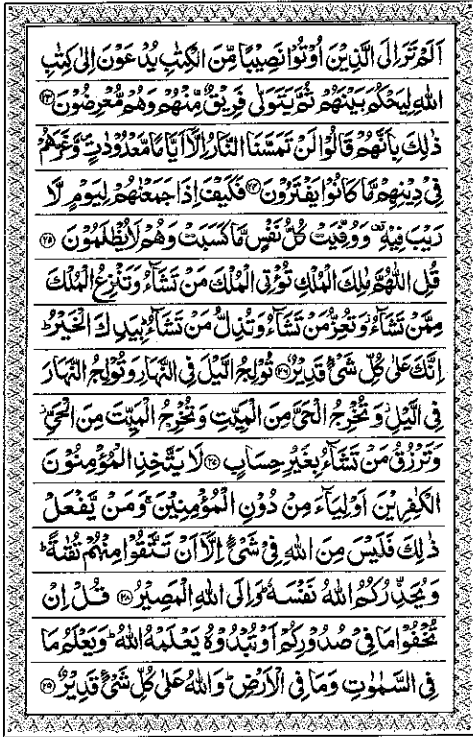 اَلَمْ تَرَ اِلَى الَّذِيْنَ اُوْتُوْا نَصِيْبًا مِّنَ الْكِتٰبِ يُدْعَوْنَ اِلٰى كِتٰبِ
اللّٰهِ لِيَحْكُمَ بَيْنَهُمْ ثُمَّ يَتَوَلّٰى فَرِيْقٌ مِّنْهُمْ وَهُمْ مُّعْرِضُوْنَ ﴿۲۳﴾
ذٰلِكَ بِاَنَّهُمْ قَالُوْا لَنْ تَمَسَّنَا النَّارُ اِلَّاۤ اَيَّامًا مَّعْدُوْدٰتٍ ۪ وَّغَرَّهُمْ
فِيْ دِيْنِهِمْ مَّا كَانُوْا يَفْتَرُوْنَ ﴿۲۴﴾ فَكَيْفَ اِذَا جَمَعْنٰهُمْ لِيَوْمٍ لَّا
رَيْبَ فِيْهِ ۟ وَوُفِّيَتْ كُلُّ نَفْسٍ مَّا كَسَبَتْ وَهُمْ لَا يُظْلَمُوْنَ ﴿۲۵﴾
قُلِ اللّٰهُمَّ مٰلِكَ الْمُلْكِ تُؤْتِى الْمُلْكَ مَنْ تَشَآءُ وَتَنْزِعُ الْمُلْكَ
مِمَّنْ تَشَآءُ ۫ وَتُعِزُّ مَنْ تَشَآءُ وَتُذِلُّ مَنْ تَشَآءُ ؕ بِيَدِكَ الْخَيْرُ ؕ
اِنَّكَ عَلٰى كُلِّ شَيْءٍ قَدِيْرٌ ﴿۲۶﴾ تُوْلِجُ الَّيْلَ فِى النَّهَارِ وَتُوْلِجُ النَّهَارَ
فِى الَّيْلِ ۫ وَتُخْرِجُ الْحَيَّ مِنَ الْمَيِّتِ وَتُخْرِجُ الْمَيِّتَ مِنَ الْحَيِّ ۫
وَتَرْزُقُ مَنْ تَشَآءُ بِغَيْرِ حِسَابٍ ﴿۲۷﴾ لَا يَتَّخِذِ الْمُؤْمِنُوْنَ
الْكٰفِرِيْنَ اَوْلِيَآءَ مِنْ دُوْنِ الْمُؤْمِنِيْنَ ۚ وَمَنْ يَّفْعَلْ
ذٰلِكَ فَلَيْسَ مِنَ اللّٰهِ فِيْ شَيْءٍ اِلَّاۤ اَنْ تَتَّقُوْا مِنْهُمْ تُقٰىةً ؕ
وَيُحَذِّرُكُمُ اللّٰهُ نَفْسَهٗ ؕ وَاِلَى اللّٰهِ الْمَصِيْرُ ﴿۲۸﴾ قُلْ اِنْ
تُخْفُوْا مَا فِيْ صُدُوْرِكُمْ اَوْ تُبْدُوْهُ يَعْلَمْهُ اللّٰهُ ؕ وَيَعْلَمُ مَا
فِى السَّمٰوٰتِ وَمَا فِى الْاَرْضِ ؕ وَاللّٰهُ عَلٰى كُلِّ شَيْءٍ قَدِيْرٌ ﴿۲۹﴾